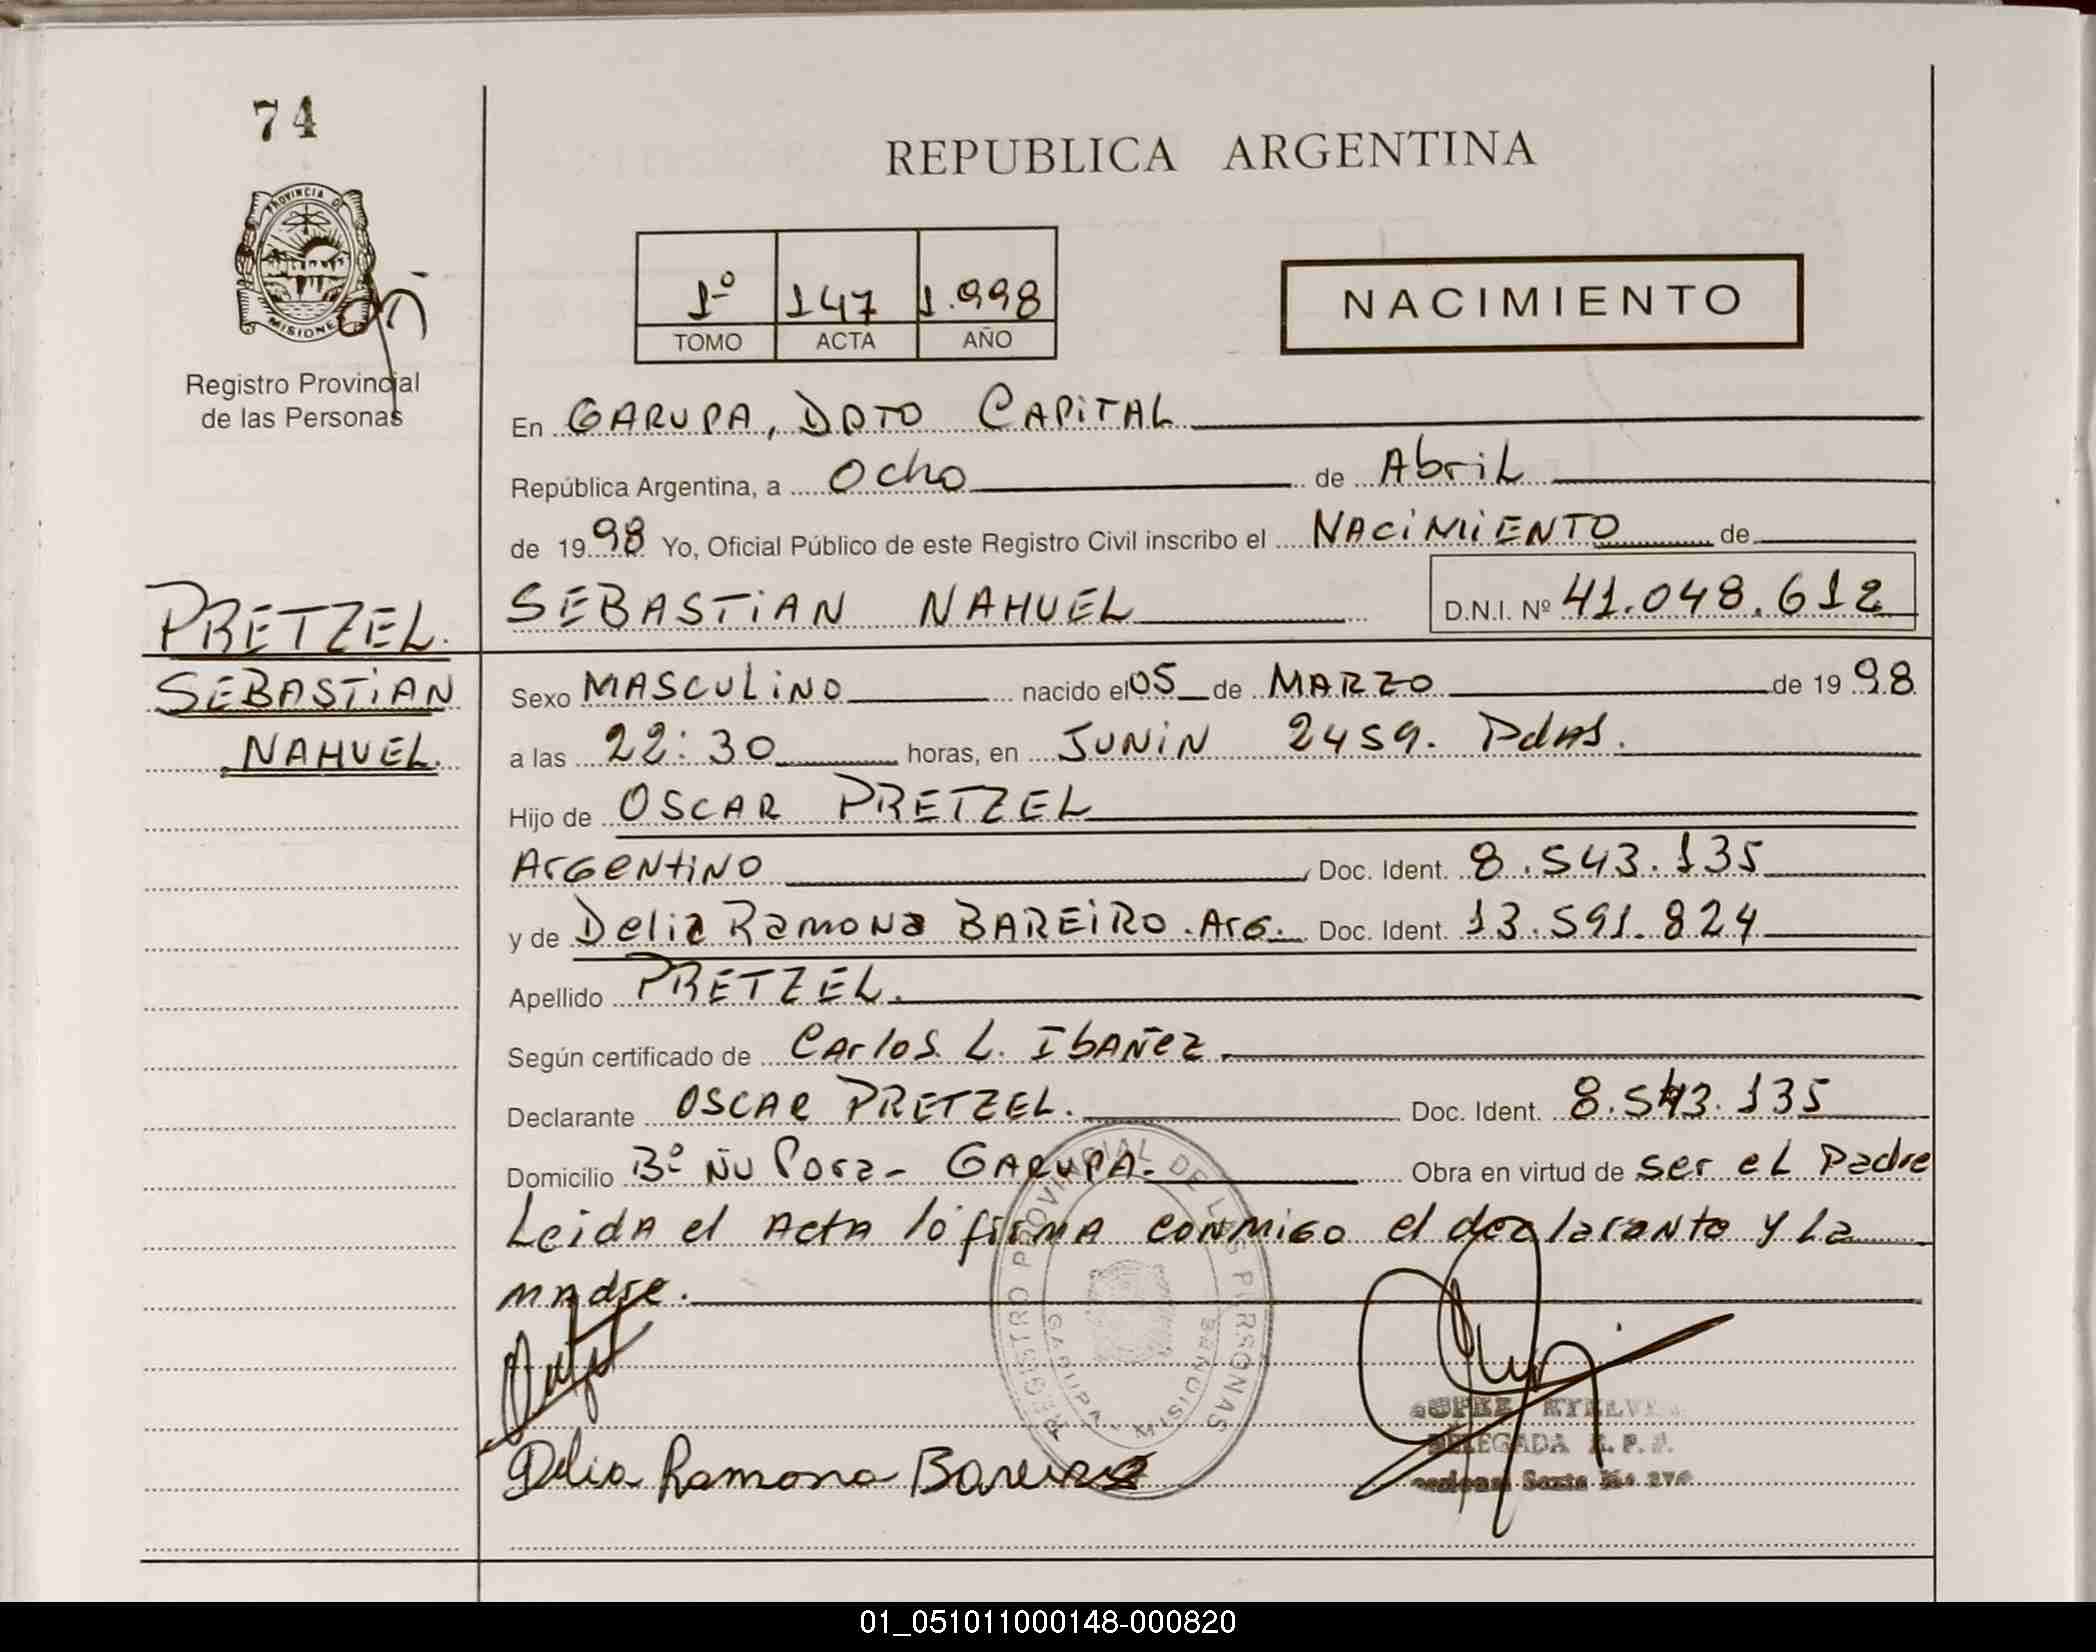 74
REPUBLICA ARGENTINA
PROVINCIA DE
MISIONES
1º 147 1.998
TOMO ACTA AÑO
NACIMIENTO
Registro Provincial
de las Personas
En GARUPA, DPTO CAPITAL
República Argentina, a Ocho de Abril
de 1998 Yo, Oficial Público de este Registro Civil inscribo el NACIMIENTO de
SEBASTIAN NAHUEL D.N.I. Nº 41.048.612
PRETZEL.
SEBASTIAN
NAHUEL.
Sexo MASCULINO nacido el 05 de MARZO de 1998
a las 22:30 horas, en JUNIN 2459. Pdas.
Hijo de OSCAR PRETZEL
Argentino Doc. Ident. 8.543.135
y de Delia Ramona BAREIRO. Arg. Doc. Ident. 13.591.824
Apellido PRETZEL.
Según certificado de Carlos L. IbAñez.
Declarante OSCAR PRETZEL. Doc. Ident. 8.543.135
Domicilio Bº Ñu Pora - GARUPA. Obra en virtud de ser el Padre
Leida el Acta lo firma conmigo el declarante y la
madre.
REGISTRO PROVINCIAL DE LAS PERSONAS
GARUPA - MISIONES
Delia Ramona Bareiro
DELEGADA R. P. P.
01_051011000148-000820